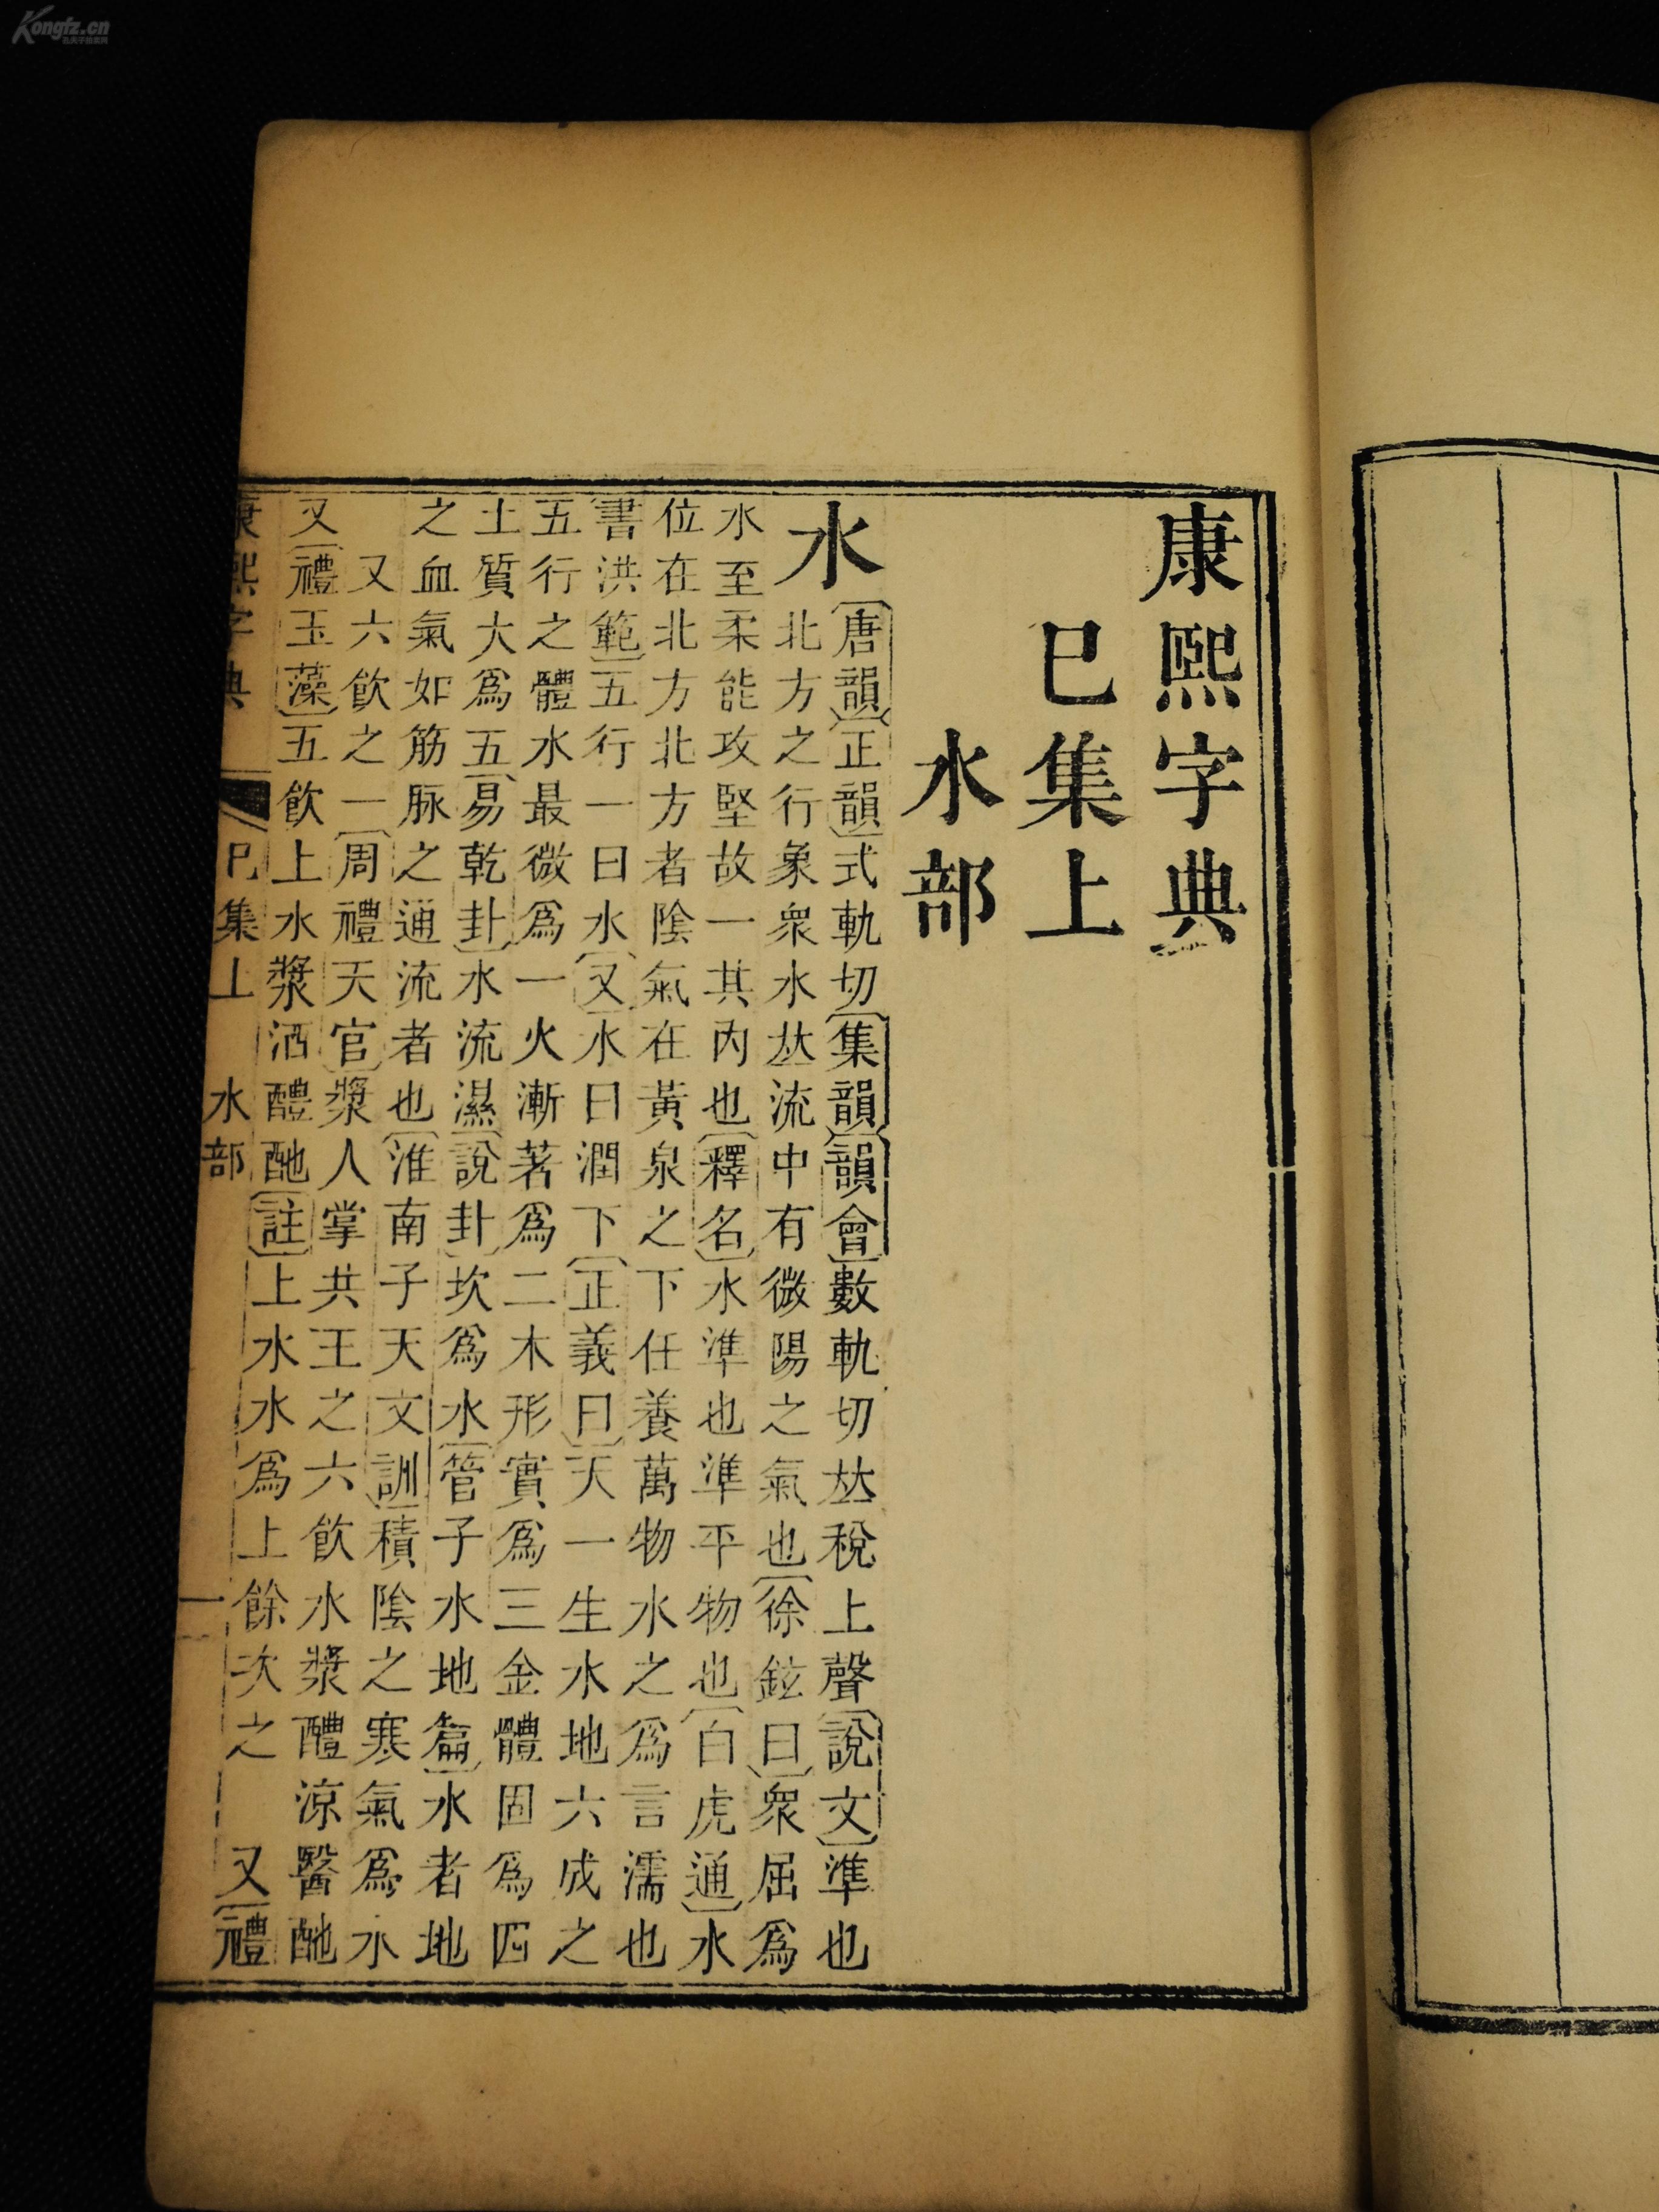 康熙字典
巳集上
水部
水
唐韻正韻式軌切集韻韻會數軌切𠀤稅上聲說文準也
北方之行象衆水𠀤流中有微陽之氣也徐鉉曰衆屈爲
水至柔能攻堅故一其內也釋名水準也準平物也白虎通水
位在北方北方者陰氣在黃泉之下任養萬物水之爲言濡也
書洪範五行一曰水又水曰潤下正義曰天一生水地六成之
五行之體水最微爲一火漸著爲二木形實爲三金體固爲四
土質大爲五易乾卦水流濕說卦坎爲水管子水地篇水者地
之血氣如筋脉之通流者也淮南子天文訓積陰之寒氣爲水
又六飮之一周禮天官漿人掌共王之六飮水漿醴涼醫酏
又禮玉藻五飮上水漿酒醴酏註上水水爲上餘次之 又禮
康熙字典 巳集上 水部 一
Kongfz.cn
孔夫子旧书网